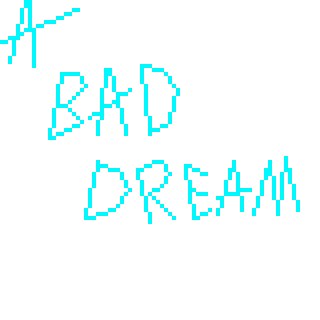 A
BAD
DREAM